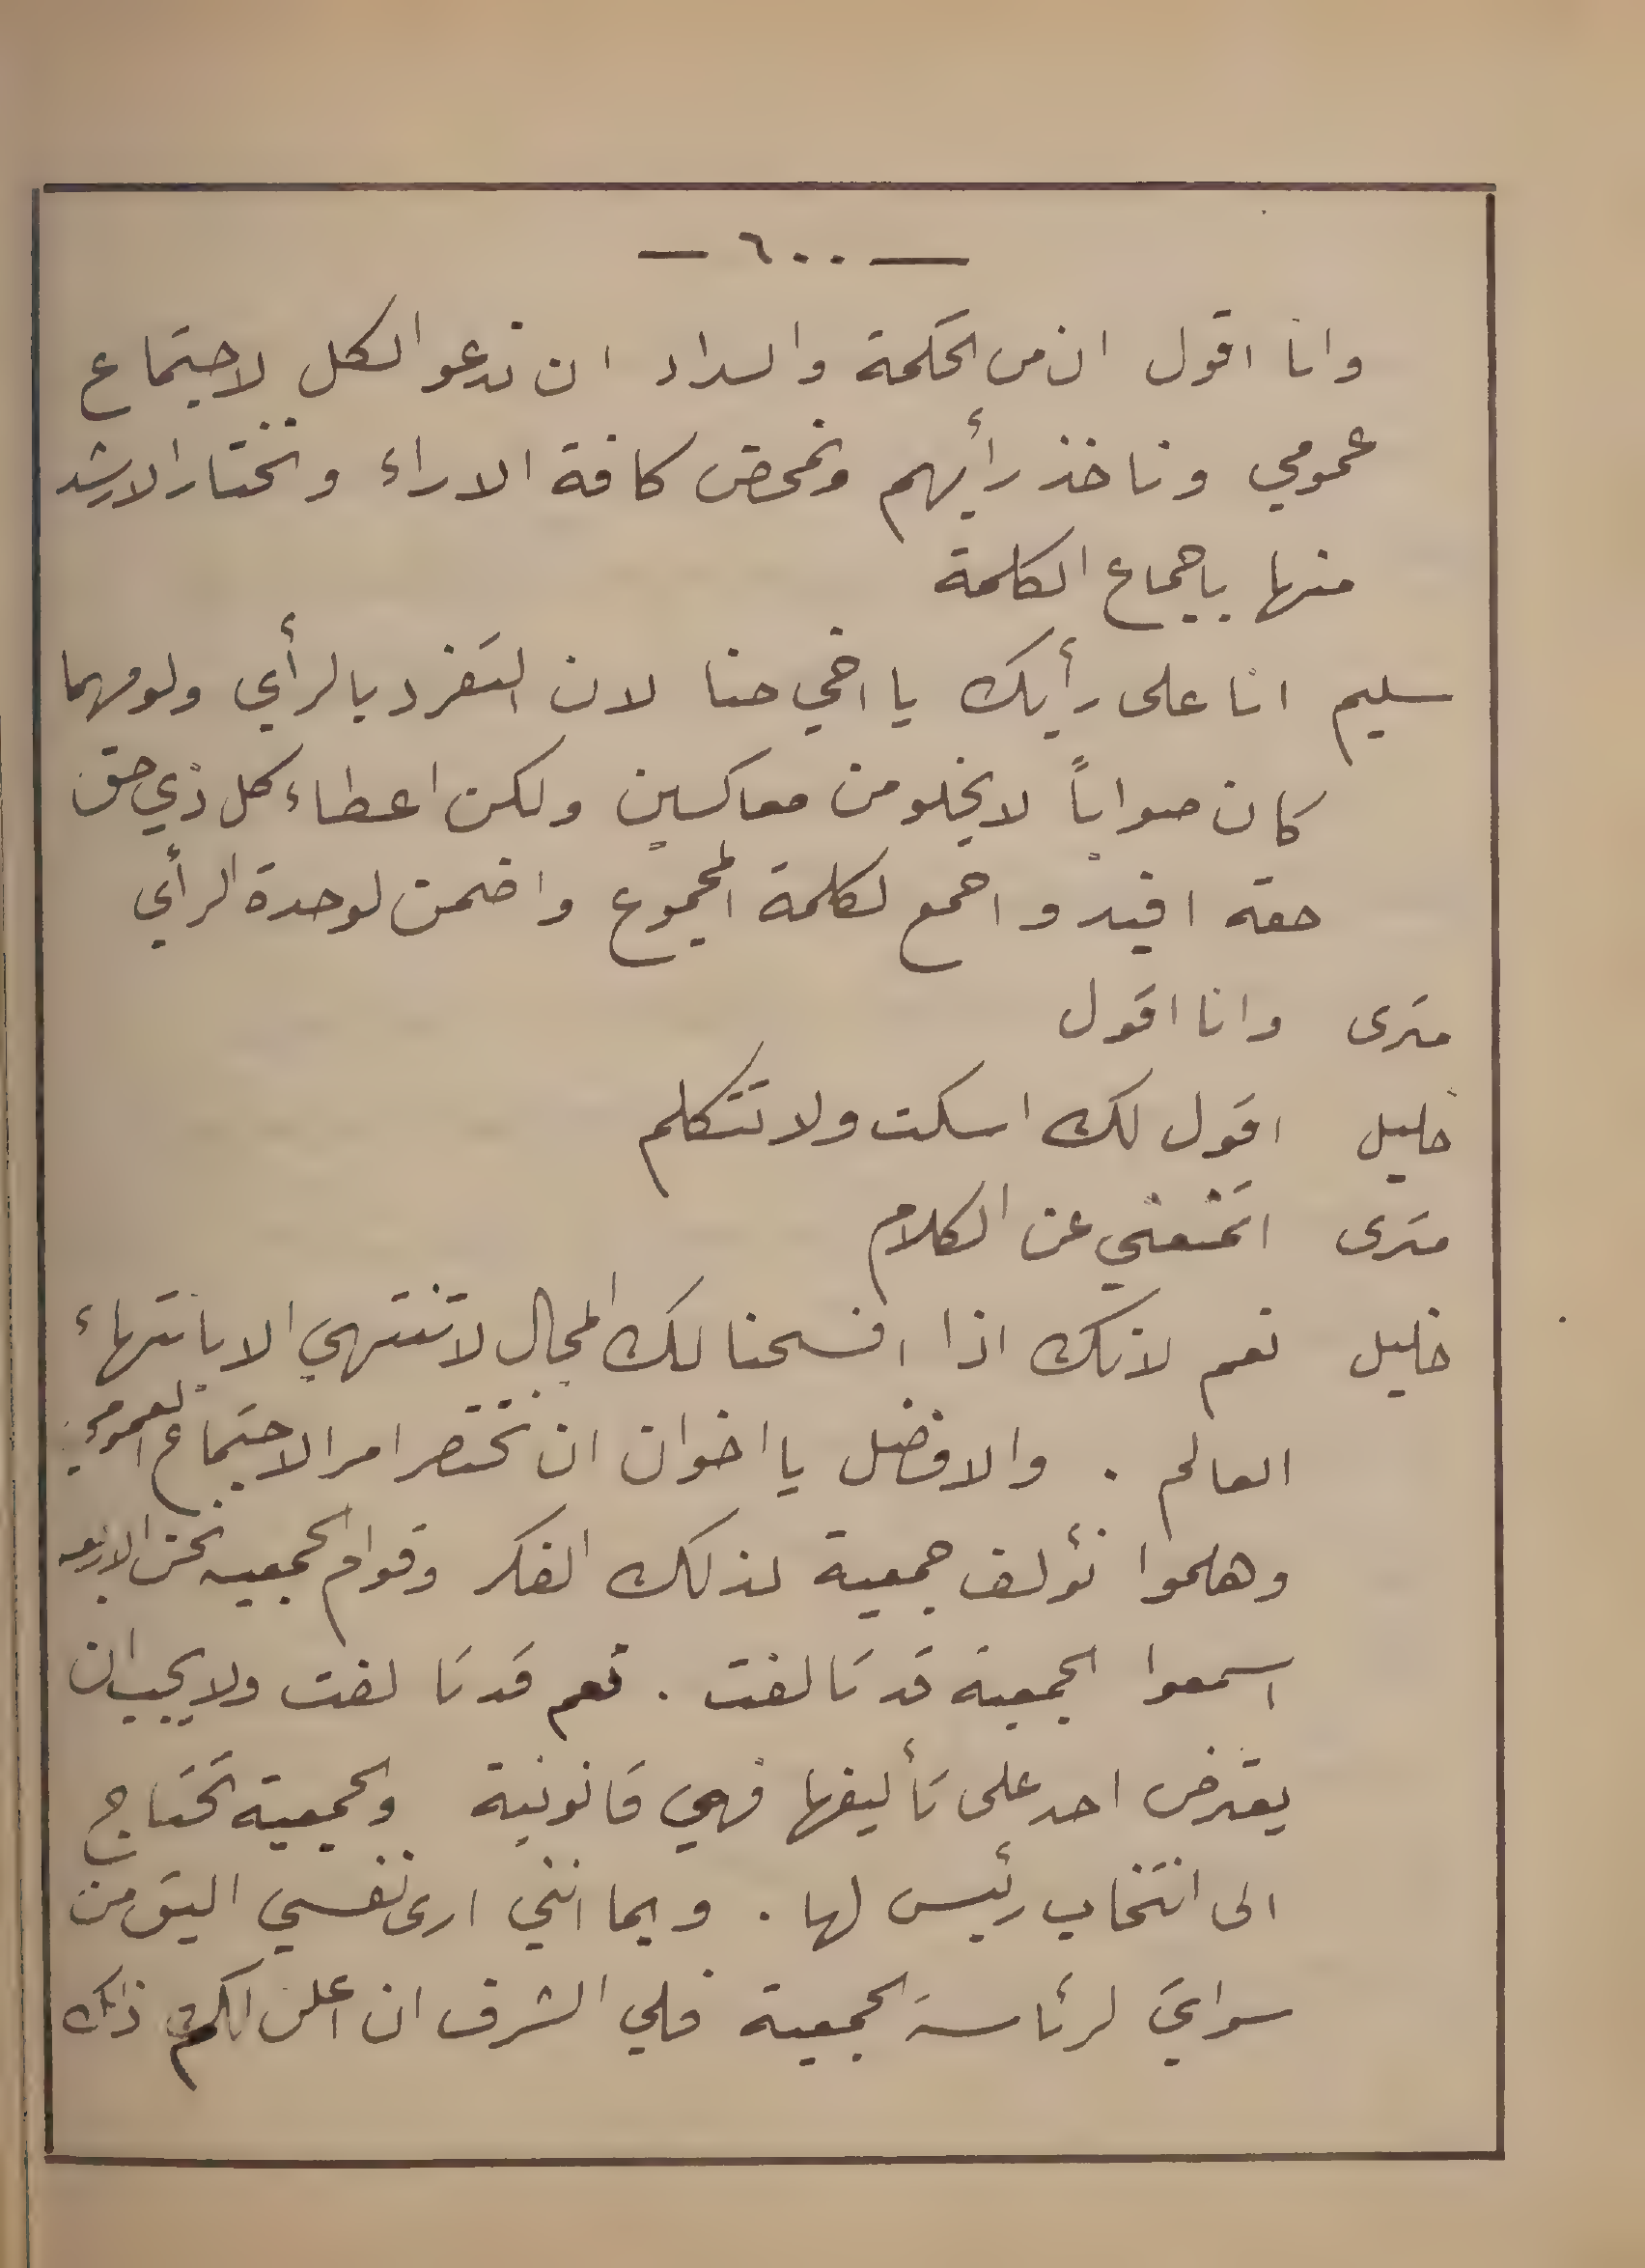 — ٦٠٠ —
وانا اقول ان من الحكمة والسداد ان ندعو الكل لاجتماع
عمومي وناخذ رأيهم ونمحض كافة الاراء ونختار الارشد
منها باجماع الكلمة
سليم انا على رأيك يا اخي حنا لان التفرد بالرأي ولو مهما
كان صواباً لا يخلو من معاكسين ولكن اعطاء كل ذي حق
حقه افيد واجمع لكلمة المجموع واضمن لوحدة الرأي
مترى وانا اقول
خليل اقول لك اسكت ولا تتكلم
مترى اتمنعني عن الكلام
خليل نعم لانك اذا افسحنا لك المجال لا تنتهي الا بانتهاء
العالم . والافضل يا اخوان ان نختصر امر الاجتماع العمومي
وهلموا نؤلف جمعية لذلك الفكر وقوام الجمعيه نحن الاربعه
اسمعوا الجمعية قد تالفت . نعم قد تالفت ولا يجب ان
يعترض احد على تأليفها فهي قانونية والجمعية تحتاج
الى انتخاب رئيس لها . وبما انني ارى نفسي اليق من
سوايَ لرئاسة الجمعية فلي الشرف ان اعلن لكم ذلك